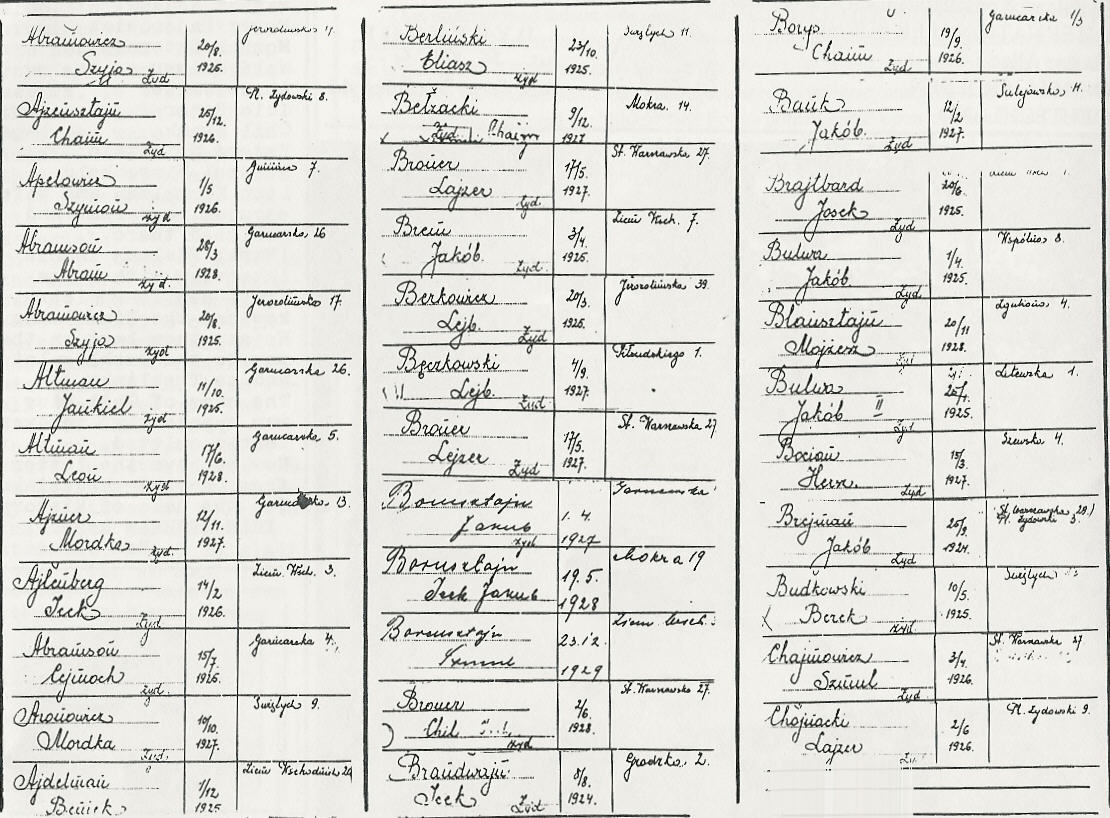 Abramowicz 20/8. Jerozolimska 17.
Szyja Żyd 1925.
Ajzensztajn 25/12. Pl. Żydowski 8.
Chaim Żyd 1926.
Apelowicz 1/5 7.
Szymon Żyd 1926.
Abramson 28/3 Garncarska 26
Abram Żyd. 1928.
Abramowicz 20/8. Jerozolimska 17.
Szyja Żyd 1925.
Altman 11/10. Garncarska 26.
Jankiel Żyd 1925.
Altman 17/6. Garncarska 5.
Leon Żyd 1928.
Ajzner 12/11. Garncarska 13
Mordka Żyd 1927.
Ajlenberg 14/2 Ziem. Wsch. 3.
Icek Żyd 1926.
Abramson 15/7. Garncarska 4.
Lejmoch Żyd. 1926.
Aronowicz 10/10. 9.
Mordka Żyd. 1927.
Ajdelman 1/12 Ziem Wschodnich
Beniek 1925
Berliński 23/10. 11.
Eliasz Żyd 1925.
Bełzacki 9/12. Mokra. 14.
Żyd Chaim 1927
Brouer 17/5. St. Warszawska 27.
Lajzer Żyd. 1927.
Brem 3/4. Ziem Wsch. 7.
Jakób. Żyd. 1925.
Berkowicz 20/3. Jerozolimska 39.
Lejb. Żyd 1925.
Bęczkowski 4/9. Piłsudskiego 1.
Lejb. Żyd. 1927.
Brouer 17/5. St. Warszawska 27
Lejzer Żyd 1927.
Bornsztajn 1. 4.
Jakub Żyd 1927
Bornsztajn 19.5. Mokra 19
Icek Jakub 1928
Bornsztajn 23.12. Ziem Wsch.
1929
Brouer 2/6. St. Warszawska 27.
Chil Żyd 1928.
Brandwajn 8/8. Grodzka. 2.
Icek Żyd 1924.
Borys 19/9. Garncarska 1/3
Chaim Żyd 1926.
Bauk 12/2 Sulejowska 11.
Jakób. Żyd 1927.
Brajtbard 20/6.
Josek Żyd 1925.
Bulwa 1/4. Wspólna 8.
Jakób Żyd. 1925.
Blausztajn 20/11 4.
Mojżesz Żyd 1928.
Bulwa Litewska 1.
Jakób II Żyd 1925.
Bocian 15/3. Szewska 4.
Hersz. Żyd 1927.
Brejman 25/9. St. Warszawska 29.) Pl. Żydowski 3.
Jakób Żyd 1924.
Budkowski 10/5.
Berek Żyd 1925.
Chajmowicz 3/4. St. Warszawska 27
Szmul Żyd 1926.
Chojnacki 2/6 Pl. Żydowski 9.
Lajzer 1926.